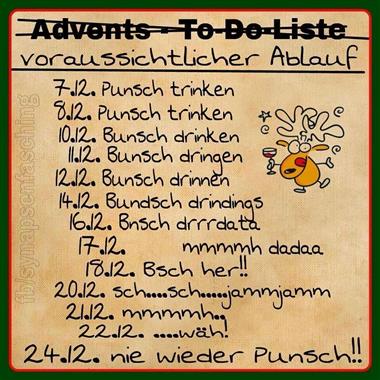 Advents - To-Do-Liste
voraussichtlicher Ablauf
7.12. Punsch trinken
8.12. Punsch trinken
10.12. Bunsch drinken
11.12. Bunsch dringen
12.12. Bunsch drinnen
14.12. Bundsch drindings
16.12. Bnsch drrrdata
17.12. mmmmh dadaa
18.12. Bsch her!!
20.12. sch.....sch.....jammjamm
21.12. mmmmh..
22.12. ....wäh!
24.12. nie wieder Punsch!!
fb/synapsenfasching